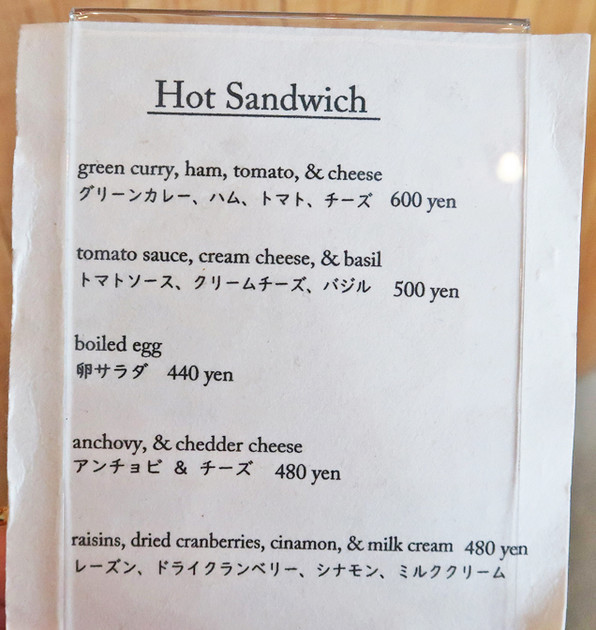 Hot Sandwich
green curry, ham, tomato, & cheese
グリーンカレー、ハム、トマト、チーズ 600 yen
tomato sauce, cream cheese, & basil
トマトソース、クリームチーズ、バジル 500 yen
boiled egg
卵サラダ 440 yen
anchovy, & chedder cheese
アンチョビ & チーズ 480 yen
raisins, dried cranberries, cinamon, & milk cream 480 yen
レーズン、ドライクランベリー、シナモン、ミルククリーム